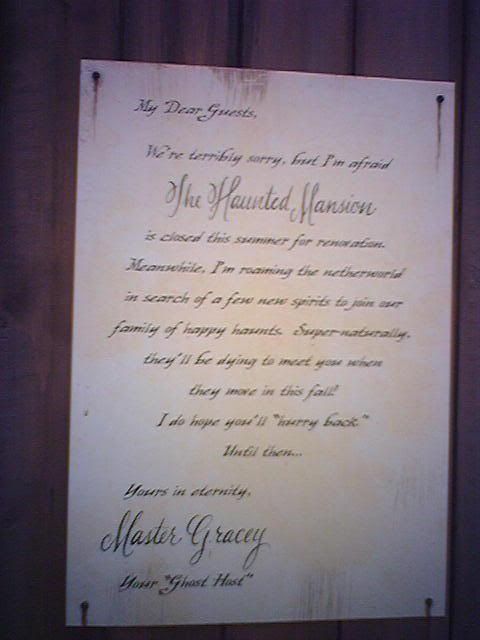 My Dear Guests,
We're terribly sorry, but I'm afraid
The Haunted Mansion
is closed this summer for renovation.
Meanwhile, I'm roaming the netherworld
in search of a few new spirits to join our
family of happy haunts. Super-naturally,
they'll be dying to meet you when
they move in this fall!
I do hope you'll "hurry back."
Until then...
Yours in eternity,
Master Gracey
Your "Ghost Host"